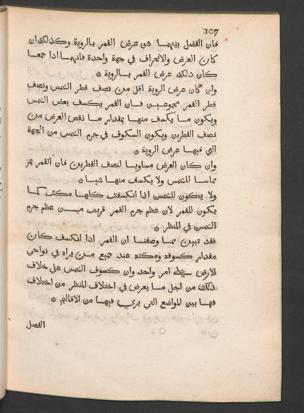 107
فان الفضل بينهما هو عرض القمر بالروية وكذلك ان
كان العرض والانحراف في جهة واحدة فانهما اذا جمعا
كان ذلك عرض القمر بالروية
وان كان عرض الروية اقل من نصف قطر الشمس ونصف
قطر القمر مجموعين فان القمر يكسف بعض الشمس
ويكون ما يكسف منها بمقدار ما نقص العرض من
نصف القطرين ويكون الكسوف في جرم الشمس من الجهة
التي فيها عرض الروية
وان كان العرض مساويا لنصف القطرين فان القمر يمر
مماسا للشمس ولا يكسف منها شيا
ولا يكون للشمس اذا انكسفت كلها مكث كما
يكون للقمر لان عظم جرم القمر قريب من عظم جرم
الشمس في المنظر
فقد تبين مما وصفنا ان القمر اذا انكسف كان
مقدار كسوفه ومكثه عند جميع من يراه في نواحي
الارض علي امر واحد وان كسوف الشمس علي خلاف
ذلك من اجل ما يعرض في اختلاف المنظر من اختلاف
فيما بين المواضع التي يري فيها من الاقاليم
الفصل